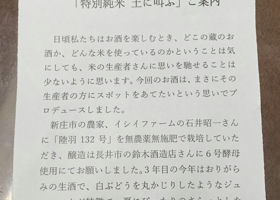 「特別純米 土に叫ぶ」ご案内
日頃私たちはお酒を楽しむとき、どこの蔵のお
酒か、どんな米を使っているのかということは気
にしても、米の生産者さんに思いを馳せることは
少ないように思います。今回のお酒は、まさにその
生産者の方にスポットをあてたいという思いでプ
ロデュースしました。
新庄市の農家、イシイファームの石井昭一さん
に「陸羽 132 号」を無農薬無施肥で栽培していた
だき、醸造は長井市の鈴木酒造店さんに6号酵母
使用にてお願いしました。3年目の今年はおりがら
みの生酒で、白ぶどうを丸かじりしたようなジュ